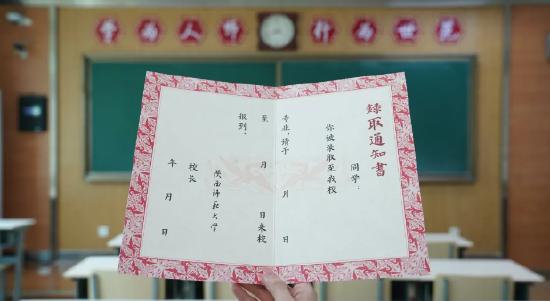 学为人师 行为世范
録取通知書
同学：
你被录取至我校
专业，请于 月 日
至 月 日来校
报到。
陕西师范大学
校长
年 月 日